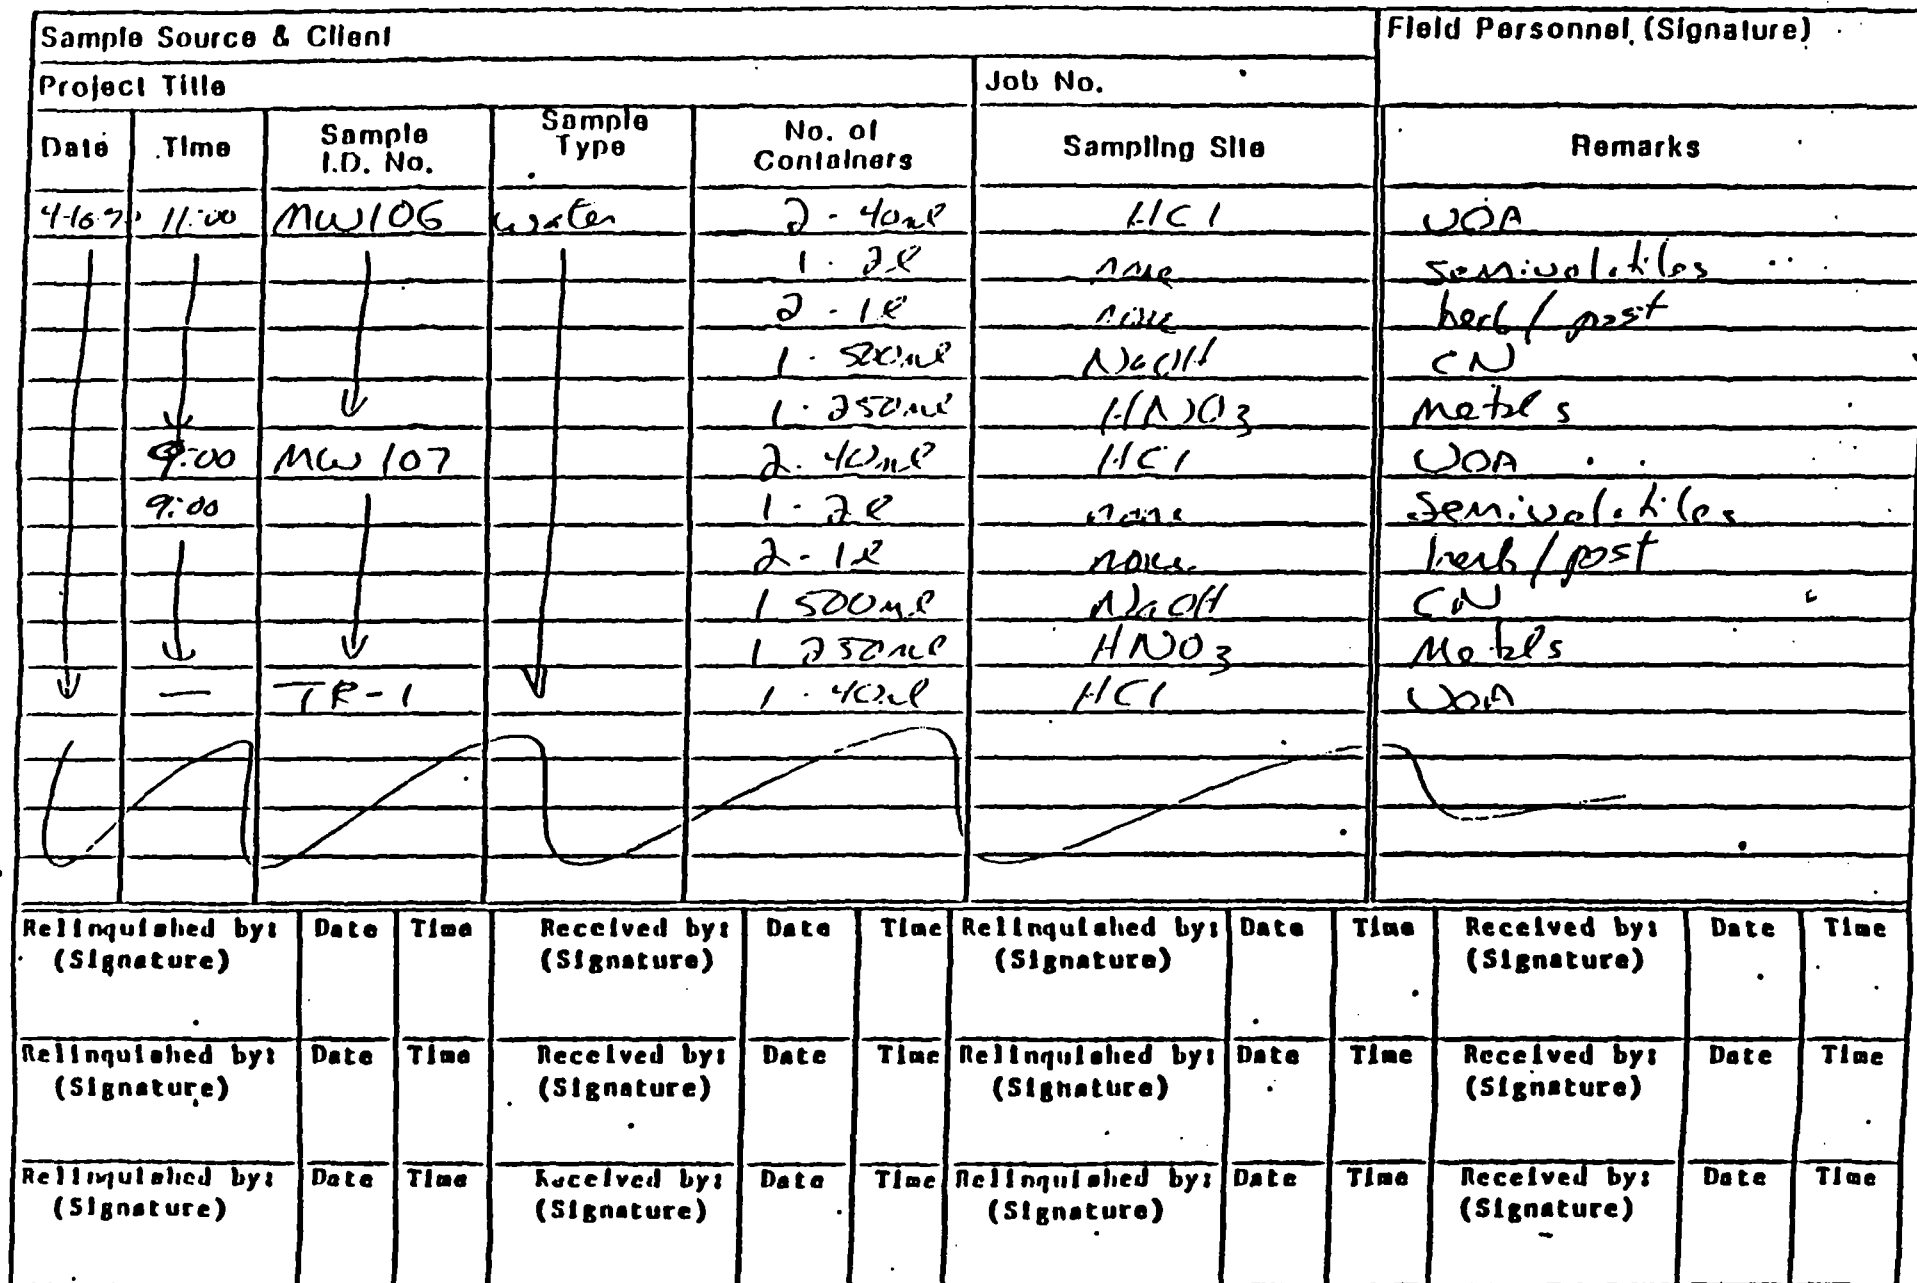 Sample Source & Client
Field Personnel (Signature)
Project Title Job No.
Date Time Sample I.D. No. Sample Type No. of Containers Sampling Site Remarks
11:00 MW106 water 2 - 40ml HCl VOA
1 - 2l none semivolatiles
2 - 1l none herb / pest
1 - 500ml NaOH CN
1 - 250ml HNO3 Metals
9:00 MW 107 2 - 40ml HCl VOA
9:00 1 - 2l none semivolatiles
2 - 1l none herb / pest
1 500ml NaOH CN
1 250ml HNO3 Metals
— 1 - 40ml HCl VOA
Relinquished by: (Signature) Date Time Received by: (Signature) Date Time Relinquished by: (Signature) Date Time Received by: (Signature) Date Time
Relinquished by: (Signature) Date Time Received by: (Signature) Date Time Relinquished by: (Signature) Date Time Received by: (Signature) Date Time
Relinquished by: (Signature) Date Time Received by: (Signature) Date Time Relinquished by: (Signature) Date Time Received by: (Signature) Date Time